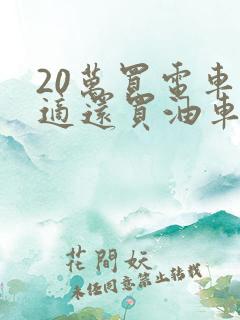 20萬買電車
適還買油車
花間妖
未經同意禁止轉載